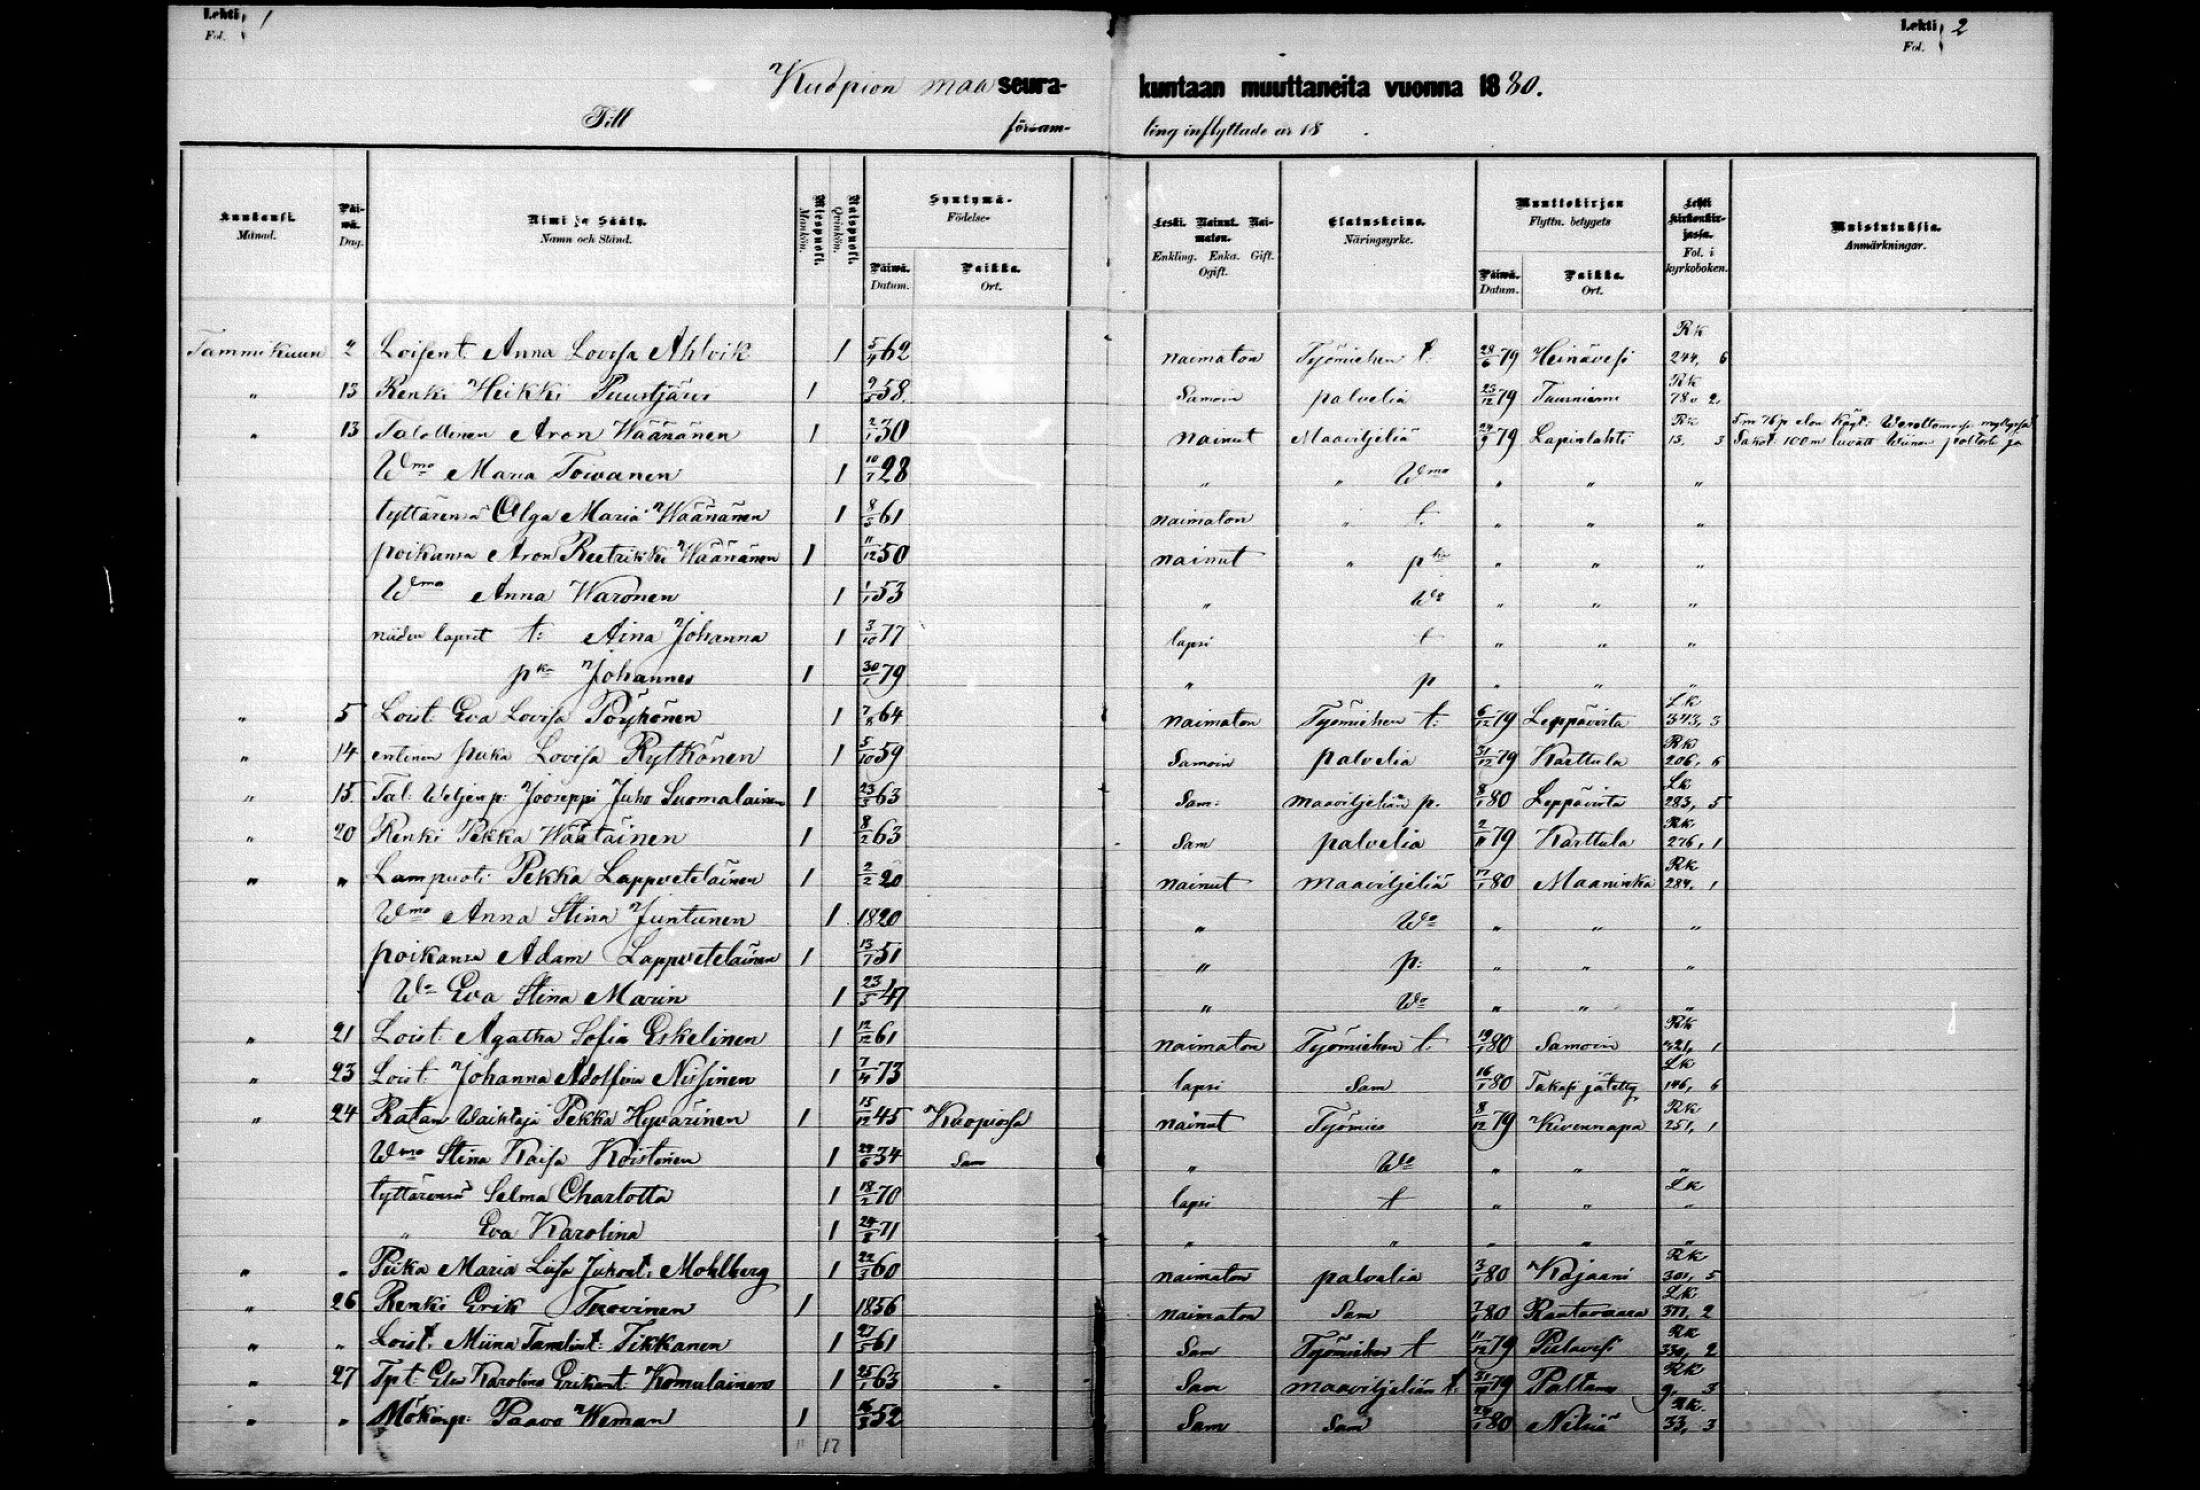 Lehti 1
Fol.
Lehti 2
Fol.
Kuopion maa seura- kuntaan muuttaneita vuonna 1880.
Till försam- ling inflyttade år 18 .
Kuukausi. Månad.
Päi-wä. Dag.
Nimi ja Sääty. Namn och Stånd.
Miespuoli. Mankön.
Naispuoli. Qvinkön.
Syntymä- Födelse-
Päiwä. Datum.
Paikka. Ort.
Leski. Nainut. Nai-maton. Enkling. Enka. Gift. Ogift.
Elatuskeino. Näringsyrke.
Muuttokirjan Flyttn. betygets
Päiwä. Datum.
Paikka. Ort.
Lehti kirkonkir-jassa. Fol. i kyrkoboken.
Muistutuksia. Anmärkningar.
Tammikuun 2 Loisent. Anna Lovisa Ahlvik 1 5/4 62 naimaton Työmiehen t. 28/6 79 Heinävesi Rk 244, 6
" 13 Renki Heikki Puustjärvi 1 9/5 58. Samoin palvelia 25/12 79 Rk 780 2,
" 13 Talollinen Aron Wäänänen 1 2/1 30 nainut Maaviljeliä 24/9 79 Lapinlahti Rk 13, 3 Sakot. 100 m luvatt Wiinan polttosta ja
Wmo Maria Toivanen 1 10/7 28 " " Wmo " " "
tyttärensä Olga Maria Wäänänen 1 8/5 61 naimaton " t. " " "
poikansa Aron Reetrikki Wäänänen 1 11/12 50 nainut " pka " " "
Wmo Anna Waronen 1 1/1 53 " Wo " " "
näiden lapset t: Aina Johanna 1 3/10 77 lapsi t " " "
pka Johannes 1 30/1 79 " p " " "
" 5 Loist. Eva Lovisa Pöyhönen 1 7/8 64 naimaton Työmiehen t. 6/12 79 Leppävirta Lk 343, 3
" 14 entinen piika Lovisa Rytkönen 1 5/10 59 Samoin palvelia 31/12 79 Karttula Rk 206, 6
" 15. Tal. Weljenp. Jooseppi Juho Suomalainen 1 23/3 63 Sam. maaviljeliän p. 8/1 80 Leppävirta Lk 283, 5
" 20 Renki Pekka Wäätäinen 1 8/2 63 Sam palvelia 2/11 79 Karttula Rk 276, 1
" " Lampuoti Pekka Lappveteläinen 1 2/2 20 nainut maaviljeliä 17/1 80 Maaninka Rk 284, 1
Wmo Anna Stina Juntunen 1 1820 " Wo " " "
poikansa Adam Lappveteläinen 1 13/7 51 " p. " " "
Wo Eva Stina Marin 1 23/5 47 " Wo " " "
" 21 Loist. Agatha Sofia Eskelinen 1 12/12 61 naimaton Työmiehen t. 19/1 80 Samoin Rk 321, 1
" 23 Loist. Johanna Adolfina Nissinen 1 7/4 73 lapsi Sam 16/1 80 Takasi jätetty Lk 146, 6
" 24 Ratan Waihtaja Pekka Hyvärinen 1 15/12 45 Kuopiossa nainut Työmies 8/12 79 Kivennapa Rk 251, 1
Wmo Stina Kaisa Koistonen 1 24/6 34 Sam " Wo " " "
tyttärensä Selma Charlotta 1 18/2 70 lapsi t " " Lk "
" Eva Karolina 1 24/8 71 " " " " "
" " Piika Maria Liisa Juhont. Mohlberg 1 22/3 60 naimaton palvelia 3/1 80 Kajaani Rk 301, 5
" 26 Renki Erik Tuovinen 1 1856 naimaton Sam 7/1 80 Rautavaara Lk 377, 2
" " Loist. Miina Taavlint. Tikkanen 1 27/5 61 Sam Työmiehen t 11/12 79 Pielavesi Rk 330, 2
" 27 Tpt. Karolina Erikint. Komulainen 1 25/1 63 Sam maaviljeliän t. 31/10 79 Paltamo Rk 9, 3
" " Mökinp. Paavo Weman 1 16/3 52 Sam Sam 24/1 80 Nilsiä Rk. 33, 3
11 17